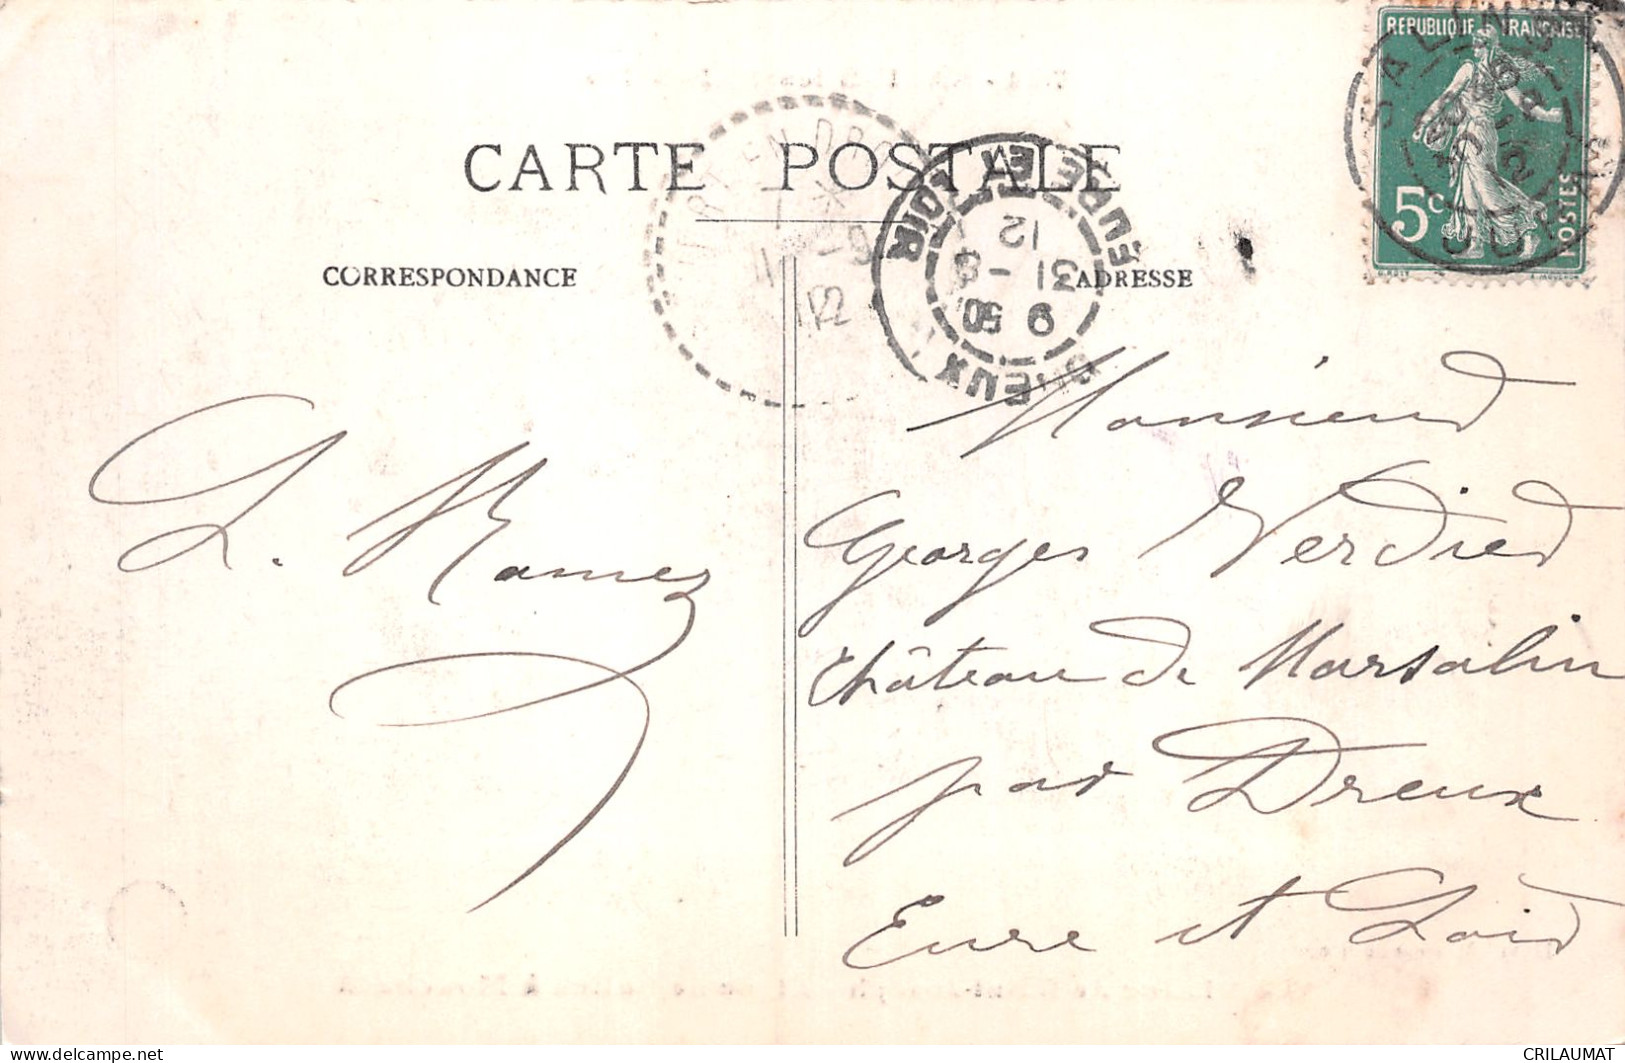 REPUBLIQUE FRANÇAISE
5c
POSTES
SALINS
JURA
CARTE POSTALE
CORRESPONDANCE
ADRESSE
DREUX
EURE ET LOIR
9 50
31 - 8
12
L. Ramez
Monsieur
Georges Verdier
Château de Marsalin
par Dreux
Eure et Loir
CRILAUMAT